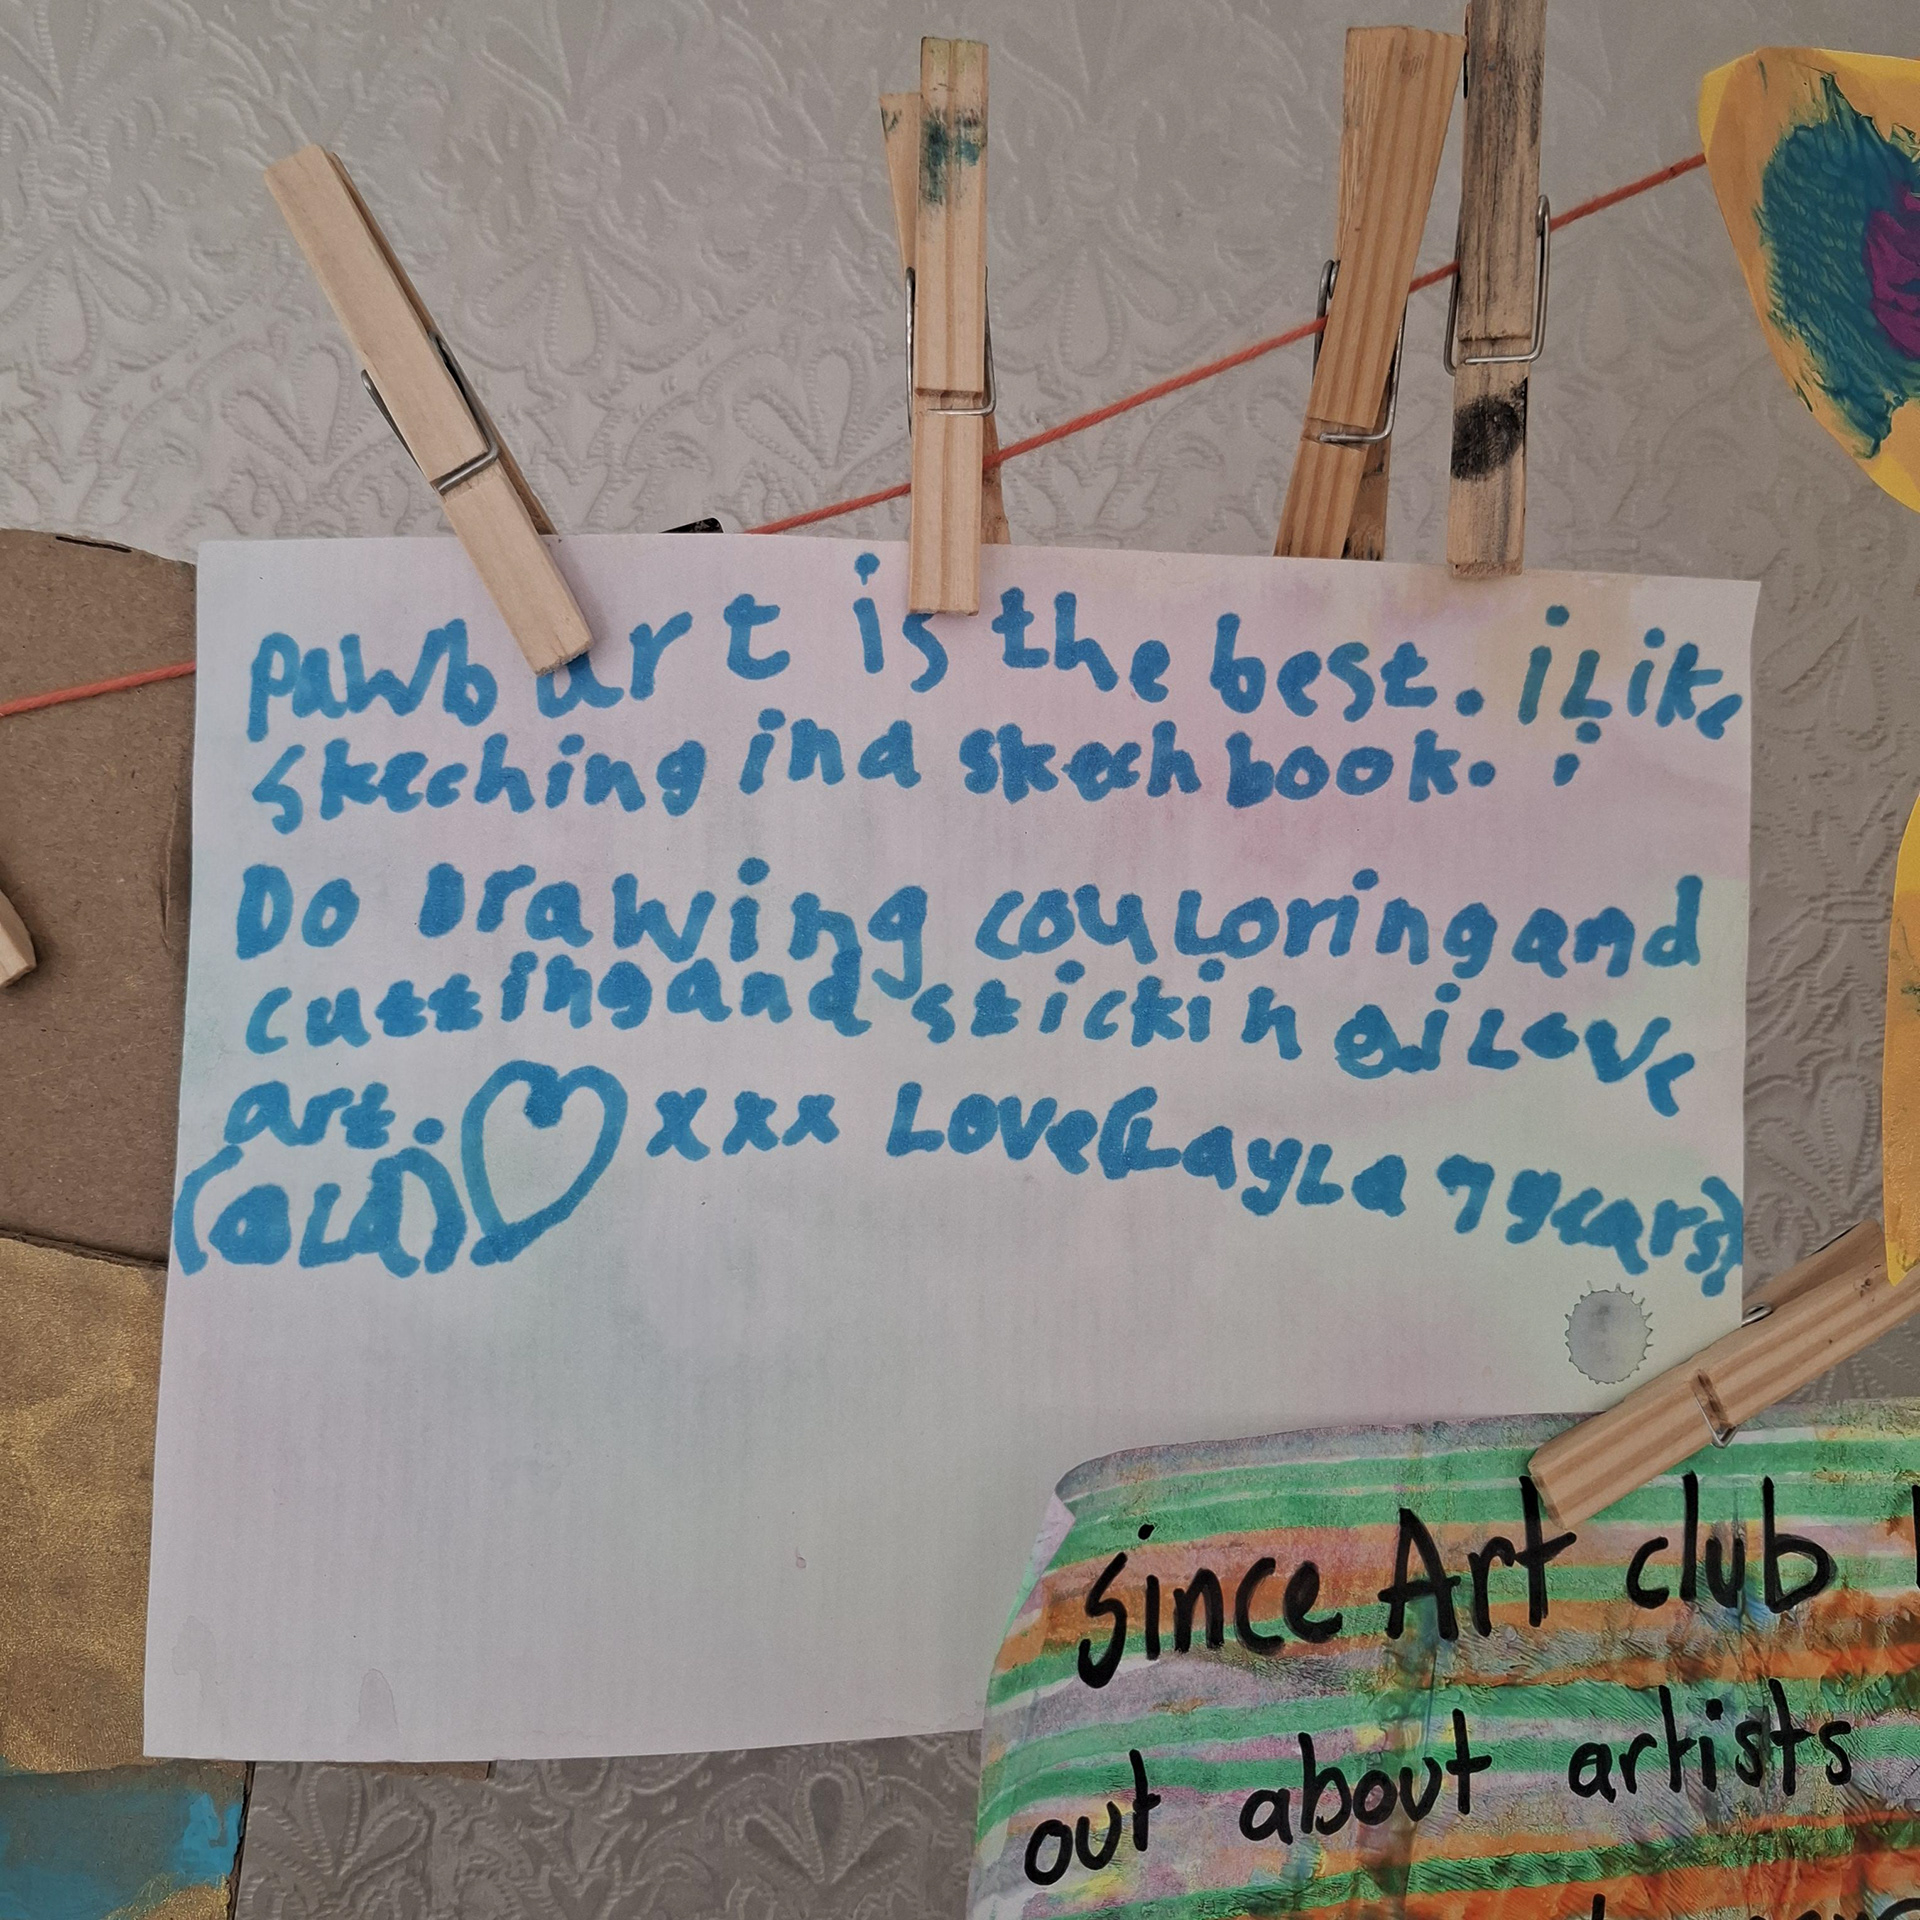 Pawb art is the best. i Like
Skeching in a skech book. i
Do Drawing couLoring and
cutting and stickin g. i Love
art. xxx Love (LayLa 7 years)
(oLd)
since Art club
out about artists